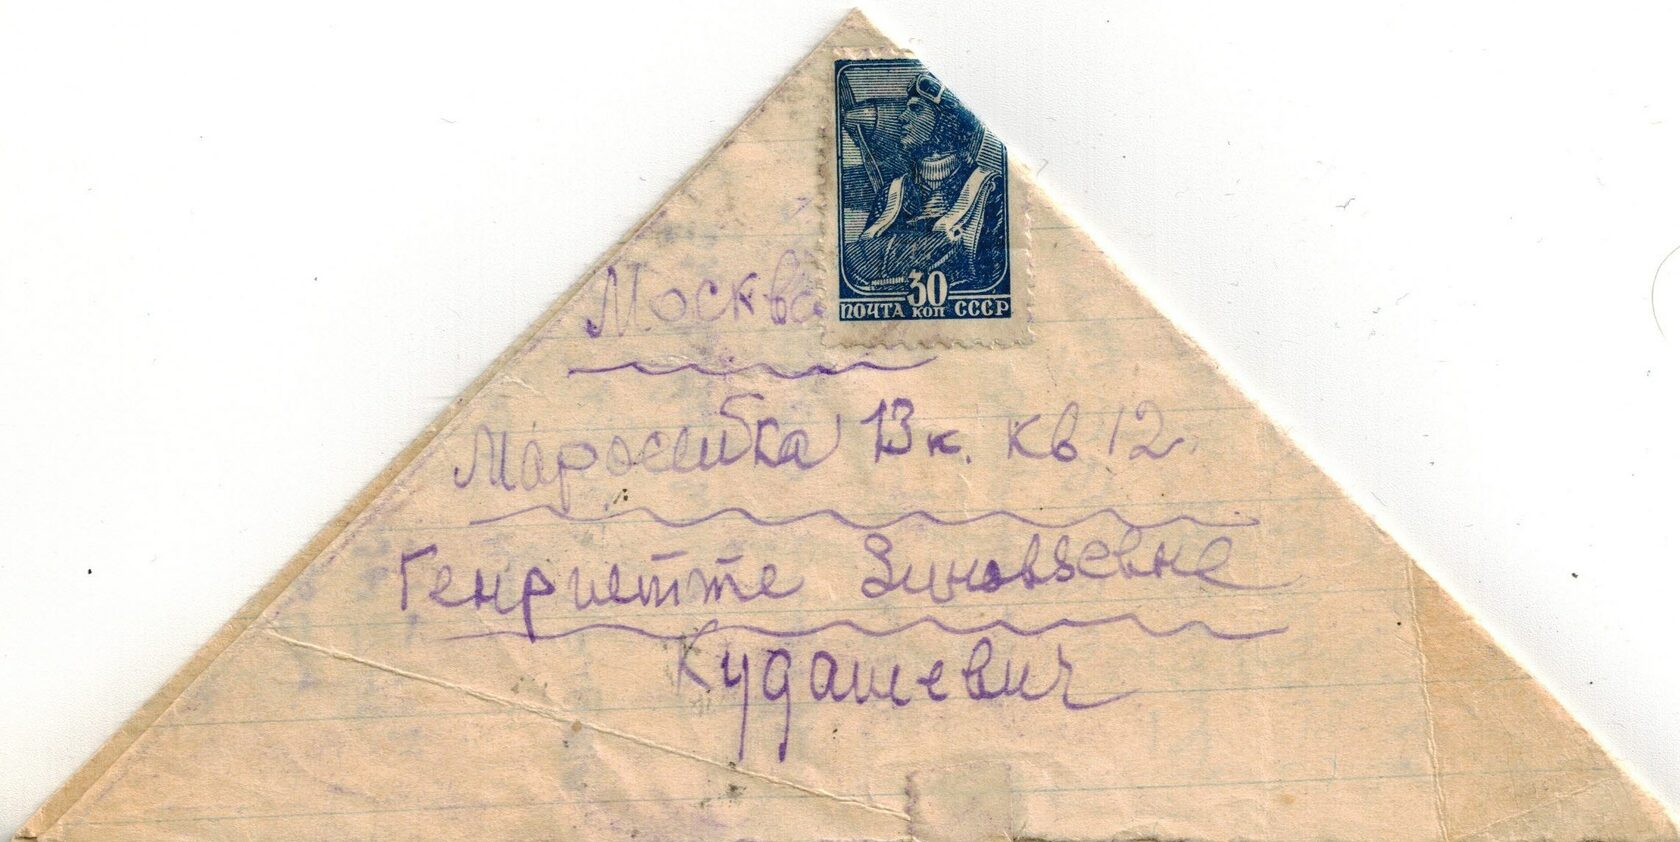 30
ПОЧТА КОП СССР
Москва
Маросейка 13 к. кв 12.
Генриетте Зиновьевне
Кудашевич